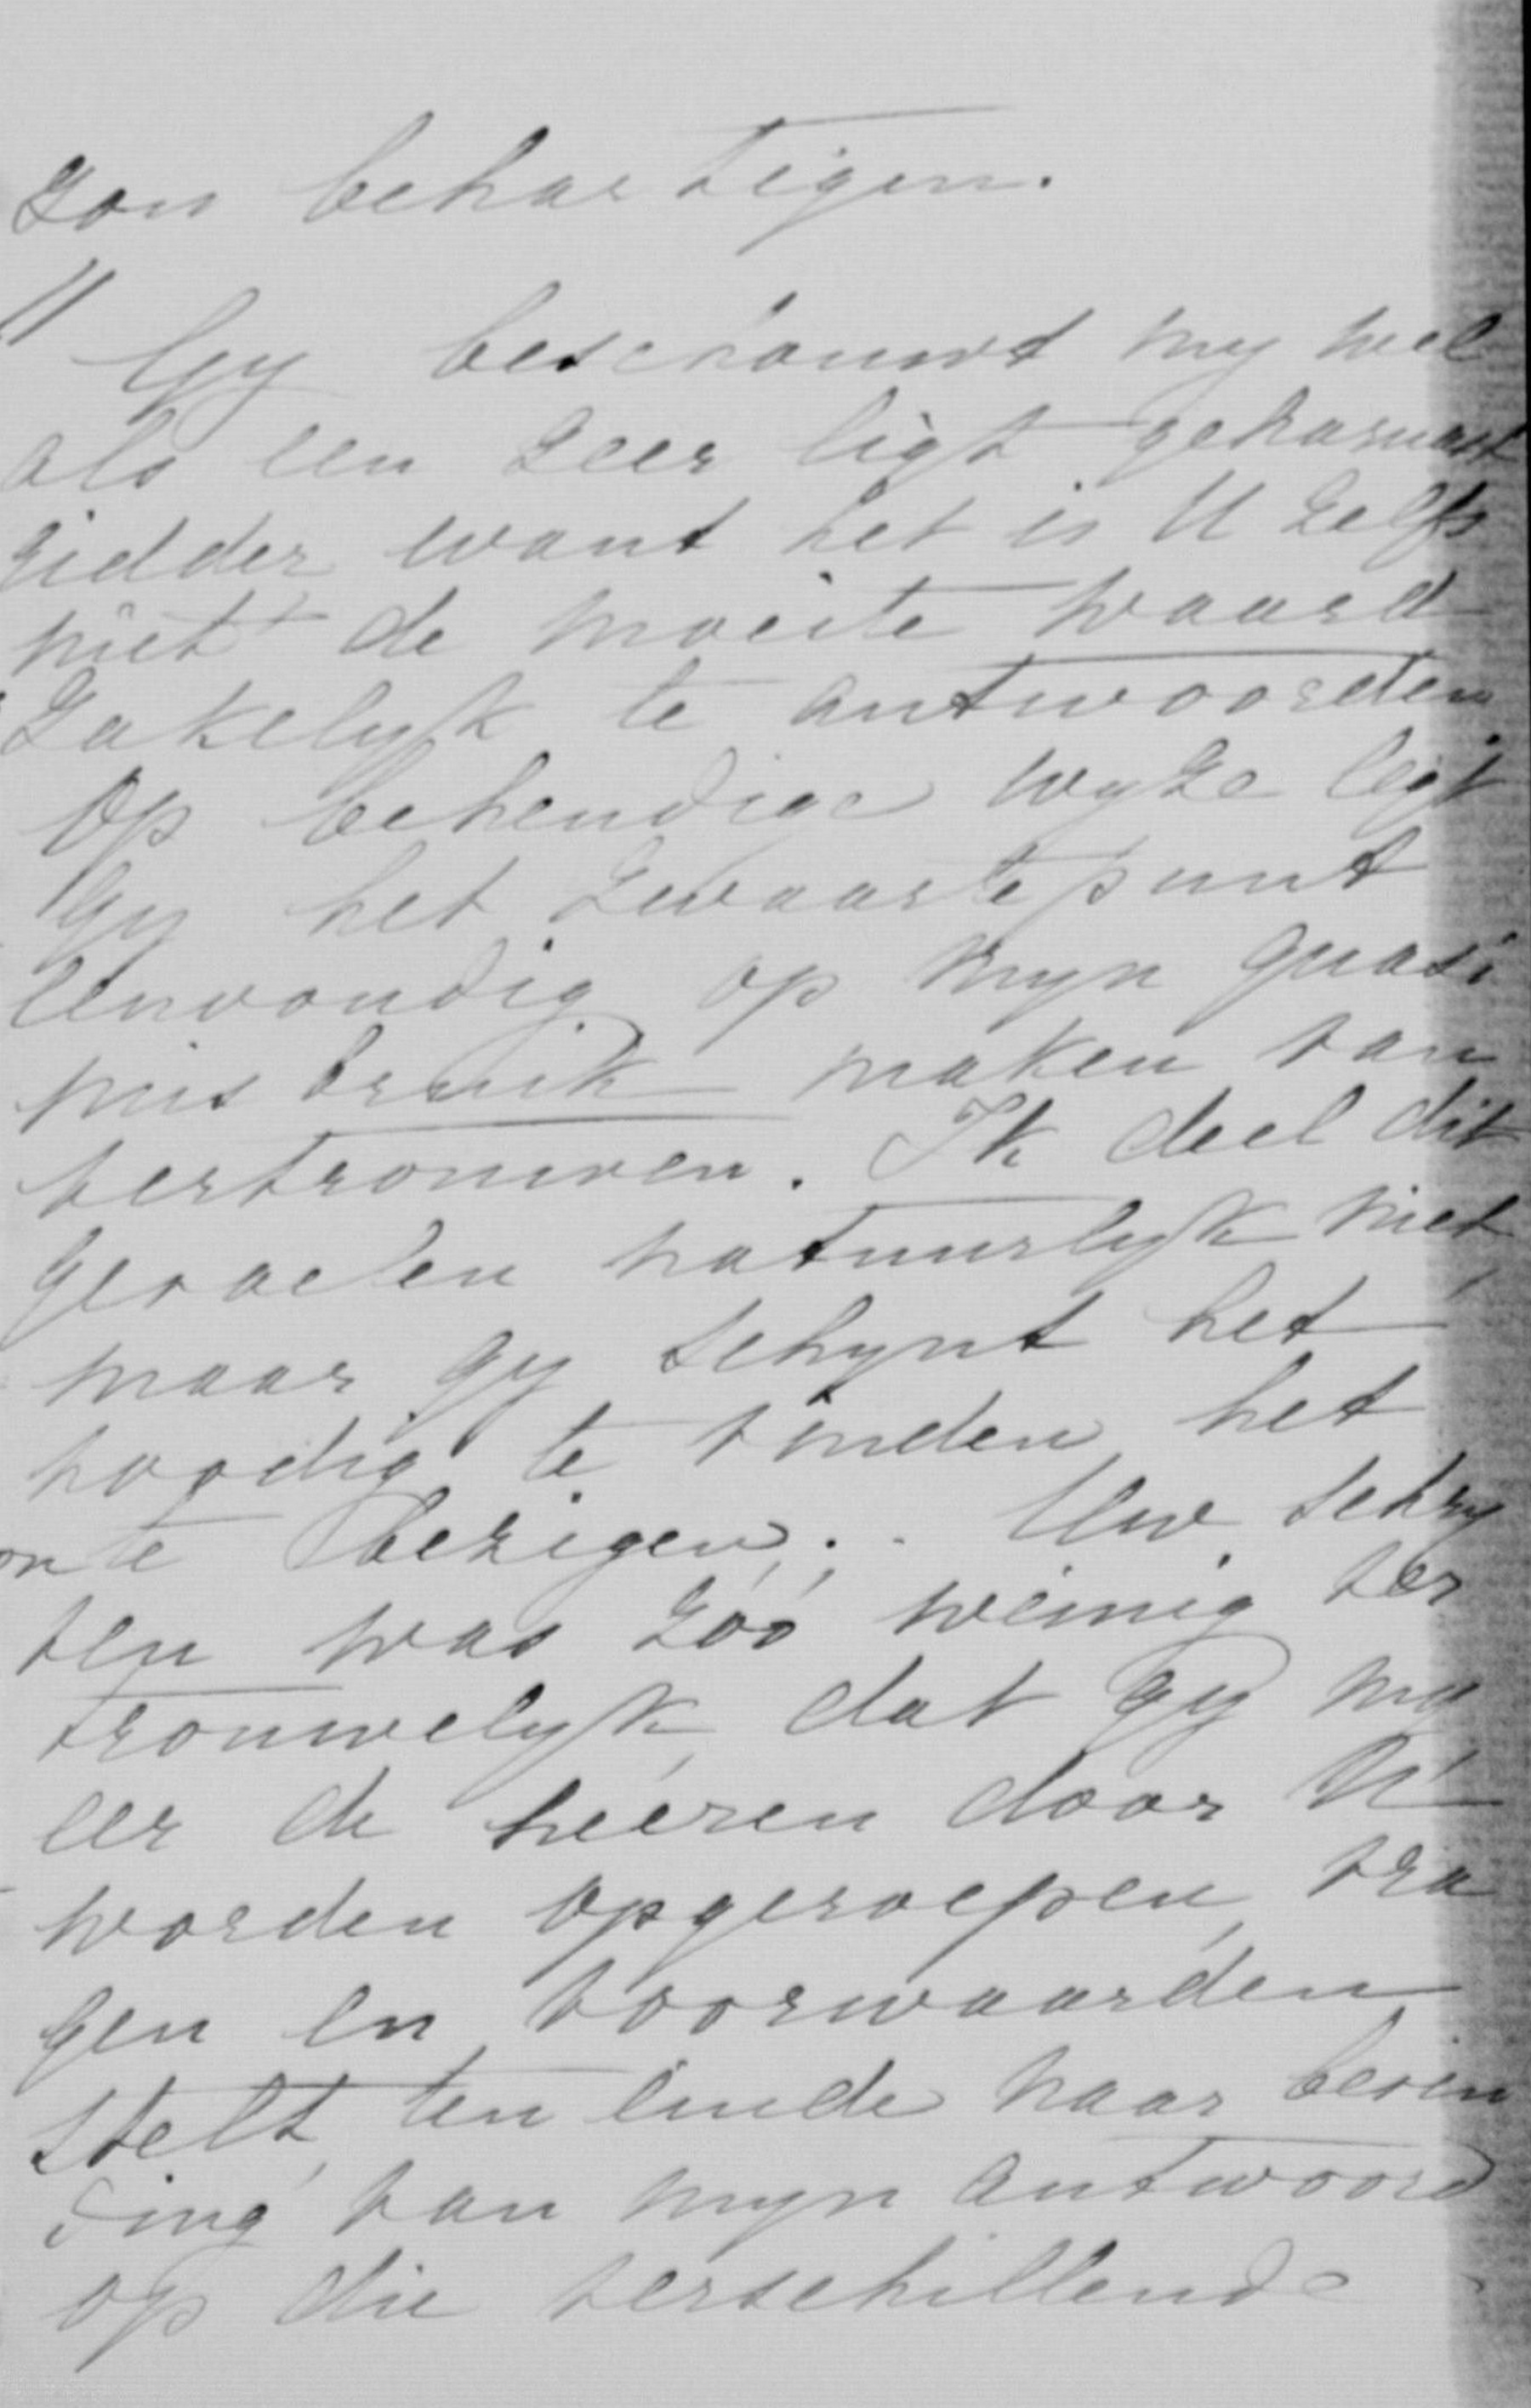 zou behartigen.
" Gy beschouwt my wel
als een zeer ligt geharnast
ridder want het is U zelfs
niet de moeite waard
zakelyk te antwoorden.
Op behendige wyze legt
Gy het zwaartepunt
eenvoudig op myn quasi
misbruik maken van
vertrouwen. Ik deel dit
gevoelen natuurlyk niet,
maar gy schynt het
noodig te vinden het
te bezigen; . Uw schry
ven was zóó weinig ver
trouwelyk, dat gy my
eer de heeren door U
worden opgeroepen, vra
gen en voorwaarden
stelt, ten einde naar bevin
ding van myn antwoord
op die verschillende